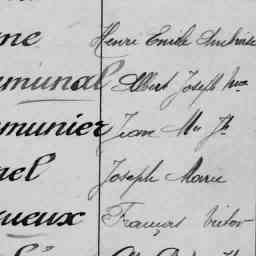 me Henri Emile Ambroise
munal Albert Joseph Mce
munier Jean Mie Jh
nel Joseph Marie
gueux François Victor